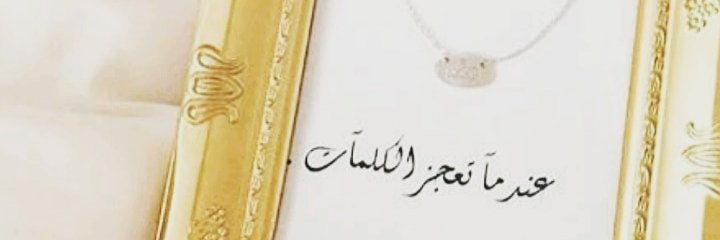 عندمآ تعجز الكلمآت .